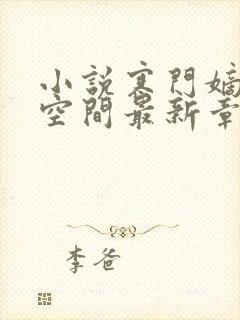 小說寒門嫡
空間最新章
李爸